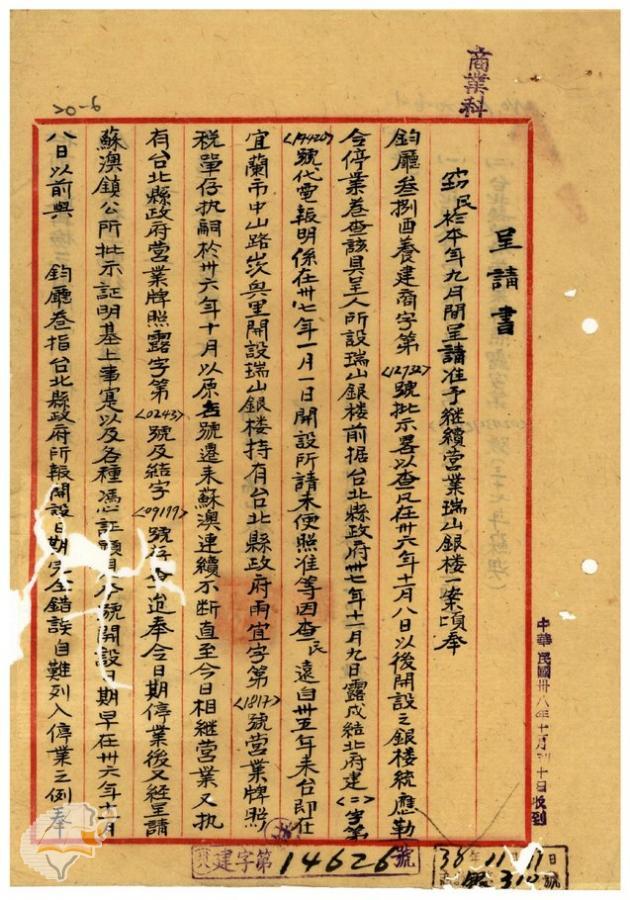 商業科
20-6
呈請書
竊民於本年九月間呈請准予継續营業瑞山銀楼一案頃奉
鈞廳叁捌酉養建商字第<12732>號批示畧以查凡在卅六年十一月八日以後開設之銀楼統應勒
令停業卷查該具呈人所設瑞山銀楼前据台北縣政府卅七年十一月九日露戍結北府建<二>字第
<19420>號代電報明係在卅七年一月一日開設所請未便照准等因查民遠自卅五年来台即在
宜蘭市中山路崁興里開設瑞山銀楼持有台北縣政府雨宜字第<1817>號营業牌照
税單存执嗣於卅六年十月以原号號遷来蘇澳連續不断直至今日相継营業又执
有台北縣政府营業牌照露字第<0243>號及結字<09199>號存 迨奉令日期停業後又経呈請
蘇澳鎮公所批示証明基上事寔以及各種馮証顾 號開設日期早在卅六年十一月
八日以前與 鈞廳卷指台北縣政府所報開設日期完全錯誤自難列入停業之例奉
中華民國卅八年十一月 十日收到
建字第14626號
38年11月 日
310號